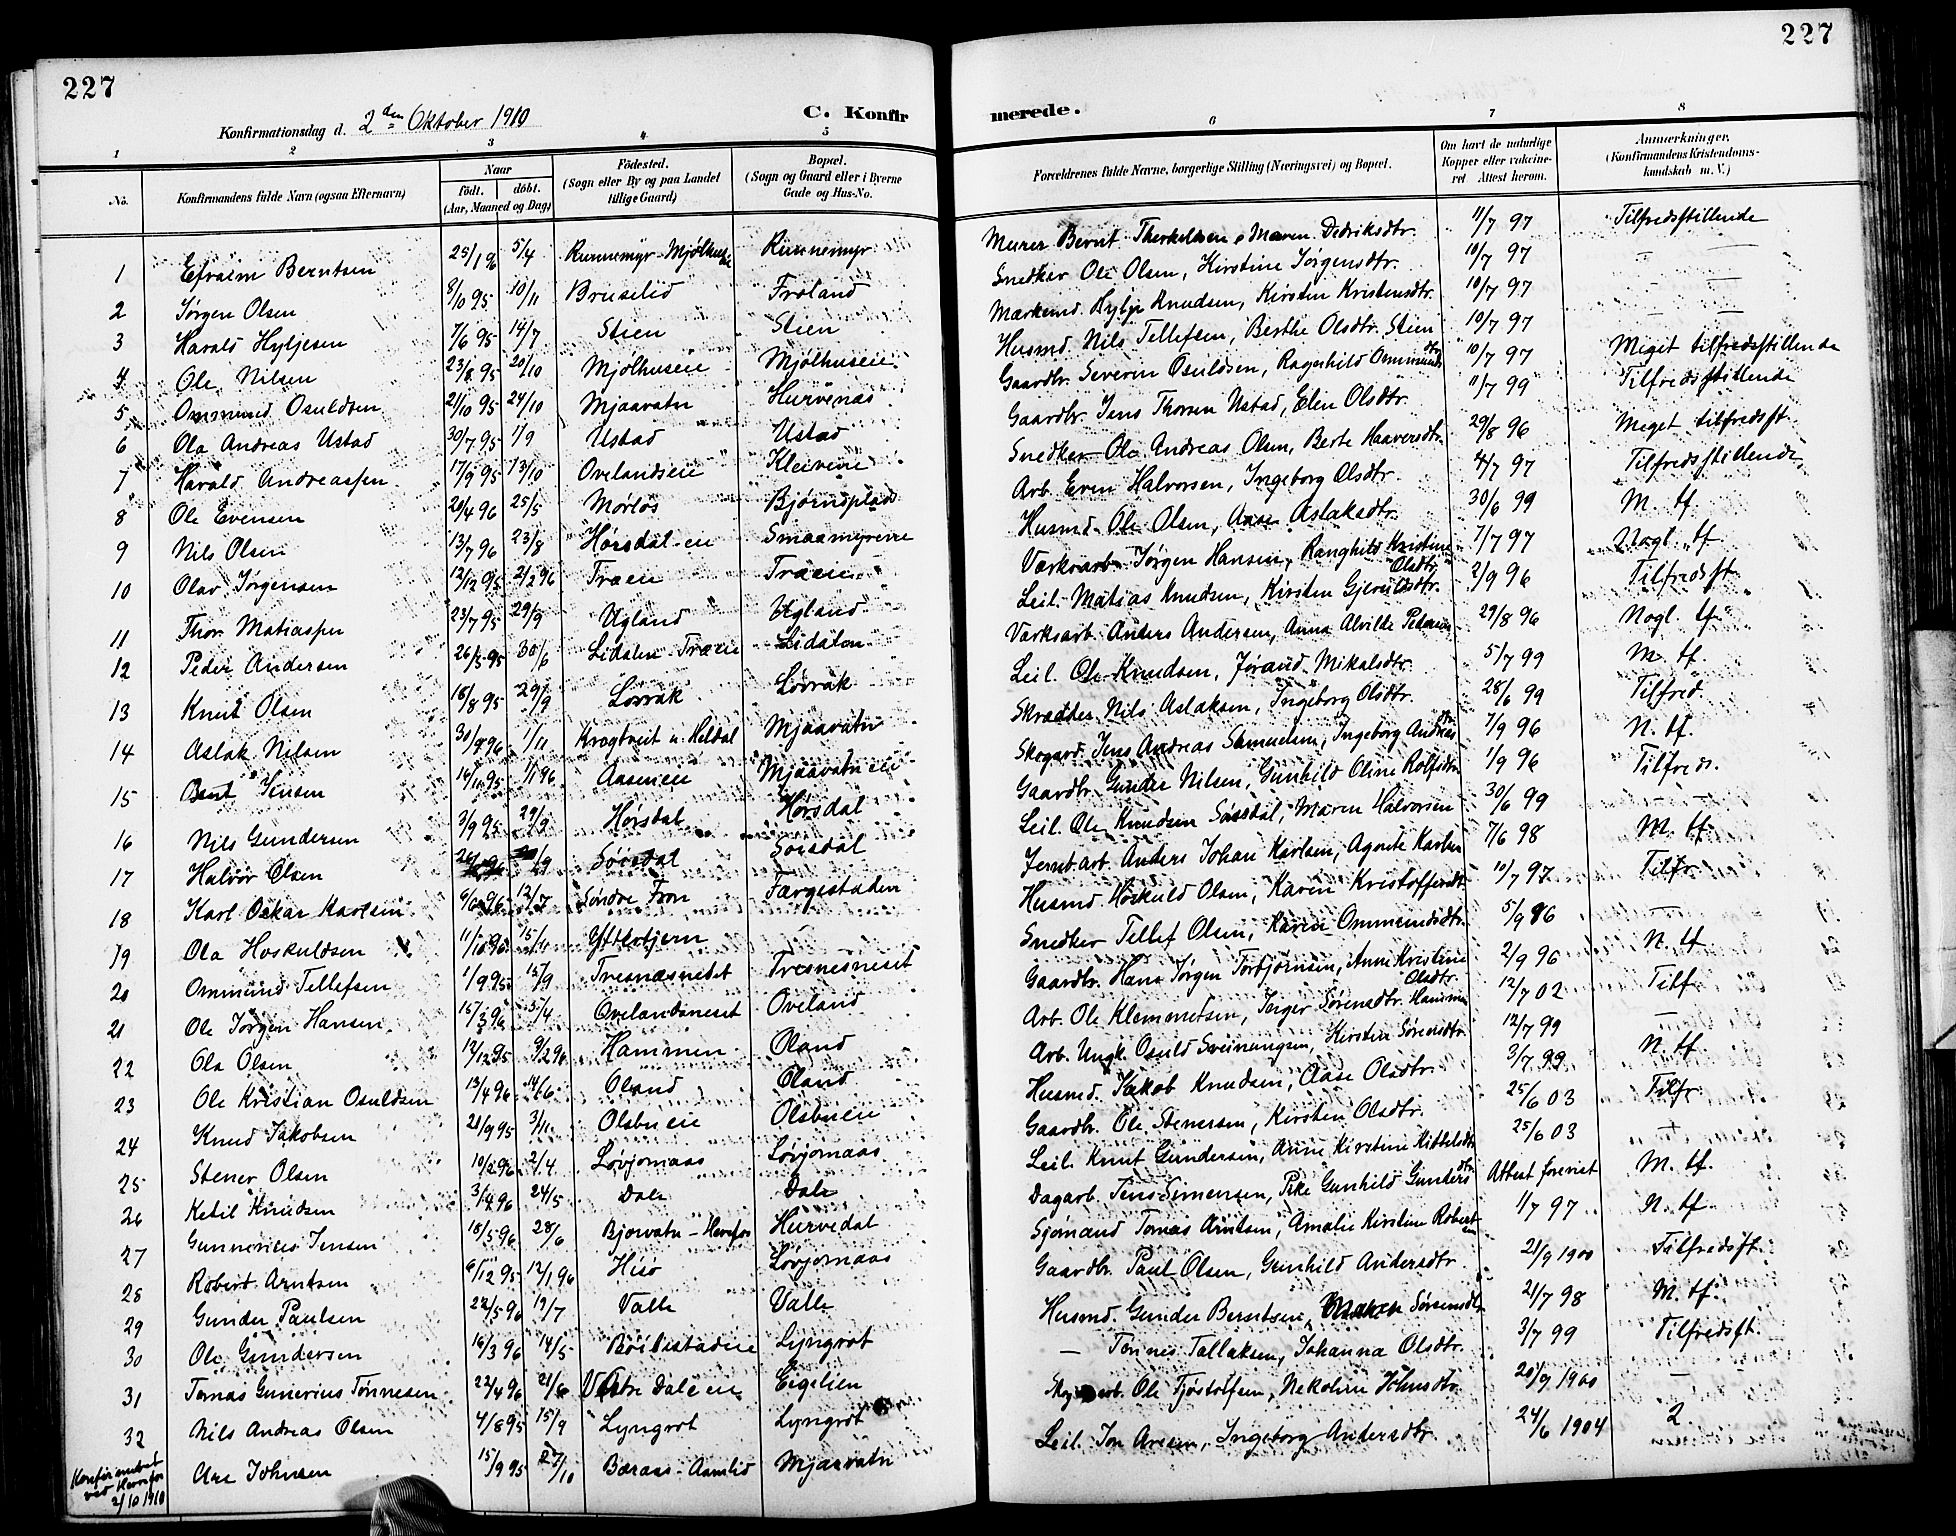 227
227
Konfirmationsdag d. 2den Oktober 1910
C. Konfirmerede.
1 2 3 4 5 6 7 8
No.
Konfirmandens fulde Navn (ogsaa Efternavn)
Naar
født. døbt.
(Aar, Maaned og Dag)
Fødested.
(Sogn eller By og paa Landet
tillige Gaard)
Bopæl.
(Sogn og Gaard eller i Byerne
Gade og Hus-No.
Forældrenes fulde Navne, borgerlige Stilling (Næringsvei) og Bopæl.
Om havt de naturlige
Kopper eller vakcine-
ret Attest herom.
Anmærkninger,
(Konfirmandens Kristendoms-
kundskab m. V.)
1 Efraim Berntsen 25/1 96 5/4 Runnemyr-Mjølhus Runnemyr Murer Bernt Therkelsen, Maren Dedriksdtr. 11/7 97 Tilfredsstillende
2 Jørgen Olsen 8/10 95 10/11 Bruselid Froland Snedker Ole Olsen, Kirstine Jørgensdtr. 10/7 97 —
3 Harald Hyljesen 7/6 95 14/7 Stien Stien Knudsen, Kirsten Kristensdtr. 10/7 97 —
4 Ole Nilsen 23/8 95 20/10 Mjølhuseie Mjølhuseie Husmd. Nils Tellefsen, Berthe Olsdtr. Stien 10/7 97 — —
5 Ommund Osuldsen 21/10 95 24/10 Mjaavatn Hurvenas Gaardbr. Severin Osuldsen, Ragnhild Ommundsdtr 10/7 97 Meget tilfredsstillende
6 Ola Andreas Ustad 30/7 95 1/9 Ustad Ustad Gaardbr. Jens Thorsen Ustad, Elen Olsdtr. 11/7 99 Tilfredsstillende
7 Harald Andreassen 17/9 95 13/10 Ovelandseie Kleiveie Snedker Ole Andreas Olsen, Berte Haaversdtr. 29/8 96 Meget tilfredsst.
8 Ole Evensen 20/4 96 25/5 Mørløs Bjørnsplads Arb. Even Halvorsen, Ingeborg Olsdtr. 4/7 97 Tilfredsstillende
9 Nils Olsen 13/7 96 23/8 Hørsdal-eie Smaamyrene Husmd. Ole Olsen, Aase Aslaksdtr. 30/6 99 M. tf.
10 Olav Jørgensen 12/12 95 2/2 96 Traeie Traeie Værksarb. Jørgen Hansen, Ranghild Kristine Olsdtr. 7/7 97 Nogl. tf.
11 Thor Matiassen 23/7 95 29/9 Ugland Ugland Leil. Matias Knudsen, Kirsten Gjeruldsdtr. 2/9 96 Tilfredsst.
12 Peder Andersen 26/5 95 30/6 Lidalen Traeie Lidalen Værksarb. Anders Andersen, Anna Alvilde Pedersen 29/8 96 Nogl. tf.
13 Knut Olsen 18/8 95 29/9 Løvrak Løvrak Leil. Ole Knudsen, Jørand Mikalsdtr. 5/7 99 M. tf.
14 Aslak Nilsen 30/9 96 1/11 Krogtveit u. Heldal Mjaavatn Skrædder Nils Aslaksen, Ingeborg Olsdtr. 28/6 99 Tilfred.
15 Bent Jensen 14/11 95 1/1 96 Aasmeie Mjaavatn eie Jens Andreas Samuelsen, Ingeborg 7/9 96 N. tf.
16 Nils Gundersen 3/9 95 29/9 Hørsdal Hørsdal Gaardbr. Gunder Nilsen, Gunhild Oline Rolfsdtr. 1/9 96 Tilfreds.
17 Halvor Olsen 1/9 Sørsdal Sørsdal Leil. Ole Knudsen Sørsdal, Maren Halvorsen 30/6 99 —
18 Karl Oskar Karlsen 6/6 96 12/7 Søndre Fron Færgestaden Jernb.arb. Anders Johan Karlsen, Agnete Karlsen 7/6 98 M. tf.
19 Ola Hoskuldsen 11/10 95 15/11 Ytterbjern Husmd Høskuld Olsen, Karen Kristoffersdtr. 10/7 97 Tilfr.
20 Ommund Tellefsen 1/9 95 15/9 Tresnæsnedet Tresnesneset Snedker Tellef Olsen, Karen Ommundsdtr. 5/9 96 —
21 Ole Jørgen Hansen 15/3 96 5/4 Ovelandsneset Oveland Gaardbr. Hans Jørgen Torbjørnsen, Anne Kristine Olsdtr. 2/9 96 N. tf
22 Ola Olsen 12/12 95 9/2 96 Hammen Oland Arb. Ole Klemmetsen, Inger Sørensdtr. Hammen 12/7 02 Tilf.
23 Ole Kristian Osuldsen 13/4 96 14/6 Oland Oland Arb. Ungk. Osuld Sveinungsen, Kirsten Sørensdtr. 12/7 99 —
24 Knud Jakobsen 21/9 95 3/11 Olsbueie Olsbueie Husmd. Jakob Knudsen, Aase Olsdtr. 3/7 99 N. tf.
25 Stener Olsen 10/2 96 2/4 Løvjomaas Løvjomaas Gaardbr. Ole Stenersen, Kirsten Olsdtr. 25/6 03 Tilfr
26 Ketil Knudsen 3/4 96 24/5 Dale Dale Leil. Knut Gundersen, Anne Kirstine Kittelsdtr. 25/6 03 —
27 Gunnerius Jensen 18/5 96 28/6 Bjorvatn-Herefos Hurvedal Dagarb. Jens Simensen, Pike Gunhild Gundersdtr Attest forevist M. tf.
28 Robert Arntsen 6/12 95 12/1 96 Hisø Løvjomaas Sjømand Tomas Arntsen, Amalie Kirstine Robertsen 1/7 97 N. tf.
29 Gunder Paulsen 22/5 96 19/7 Valle Valle Gaardbr. Paul Olsen, Gunhild Andersdtr. 21/9 1900 Tilfredsst.
30 Ole Gundersen 16/3 96 14/5 Bøilestadeie Lyngrot Husmd. Gunder Berntsen, Maren Sørensdtr. 21/7 98 M. tf.
31 Tomas Gunerius Tønnesen 22/4 96 21/6 Vestre Dale eie Eigelien — Tønnes Tallaksen, Johanna Olsdtr. 3/7 99 Tilfredsst.
32 Nils Andreas Olsen 4/8 95 15/9 Lyngrot Lyngrot arb. Ole Fjøstolfsen, Nekoline Johnsdtr. 20/9 1900 —
Konfirmeret ved Herefos 2/10 1910 Are Johnsen 15/9 95 27/10 Baraas-Aamlid Mjaavatn Leil. Jon Aresen, Ingeborg Andersdtr. 24/6 1904 2.